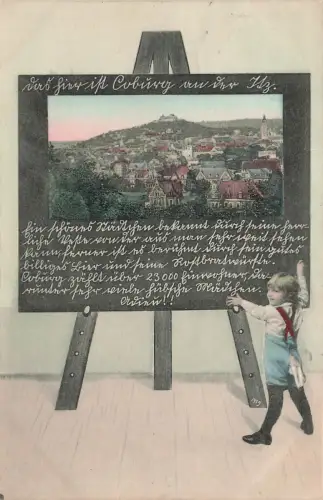 das hier ist Coburg an der Itz.
Ein schönes Städtchen bekannt durch seine herr-
liche Veste von der aus man sehr weit sehen
kann, ferner ist es berühmt durch sein gutes
billiges Bier und seine Rostbratwürste.
Coburg zählt über 23 000 Einwohner, da-
runter sehr viele hübsche Mädchen.
Adieu!!